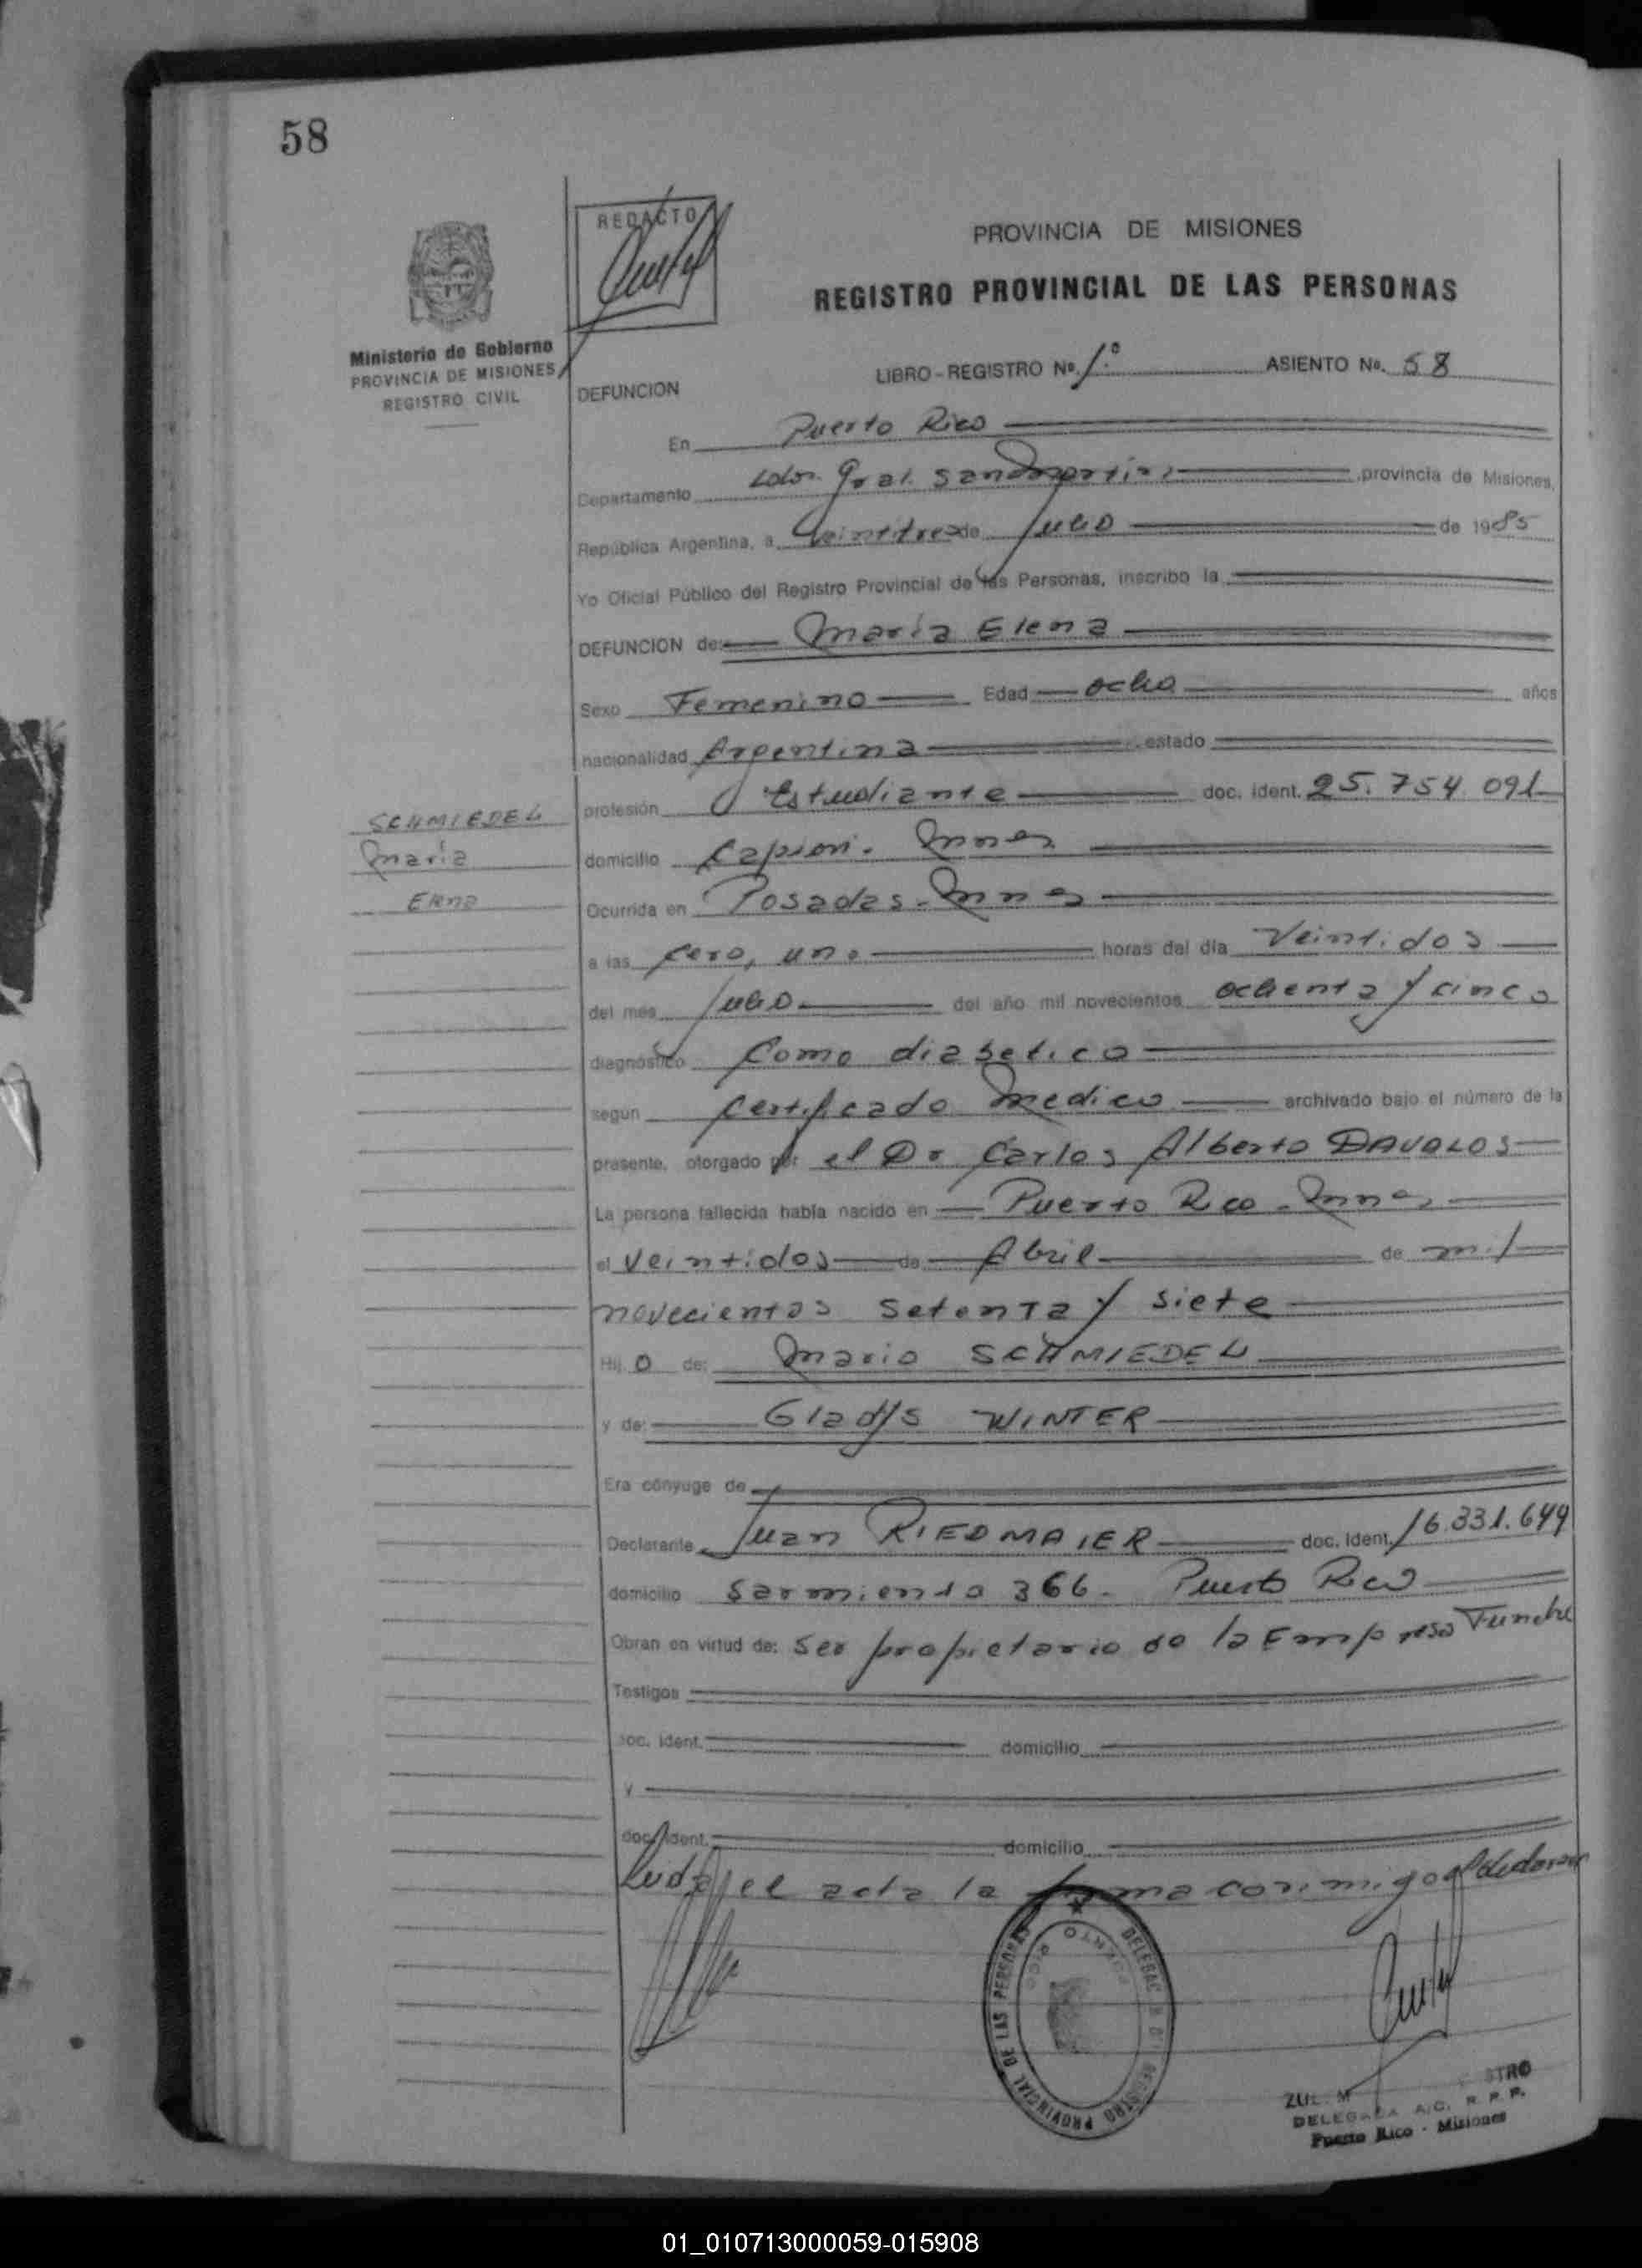 58
REDACTO
PROVINCIA DE MISIONES
REGISTRO PROVINCIAL DE LAS PERSONAS
Ministerio de Gobierno
PROVINCIA DE MISIONES
REGISTRO CIVIL
LIBRO-REGISTRO No. 1º ASIENTO No. 58
DEFUNCION
En Puerto Rico
Departamento Ldor. Gral. San Martín provincia de Misiones,
República Argentina, a Veintitres de Julio de 1985
Yo Oficial Público del Registro Provincial de las Personas, inscribo la
DEFUNCION de: María Elena
Sexo Femenino Edad ocho años
nacionalidad Argentina estado
profesión Estudiante doc. ident. 25.754.091
SCHMIEDEL
María
Elena
domicilio Capiovi. Mnes
Ocurrida en Posadas - Mnes
a las cero, uno horas del día Veintidos
del mes Julio del año mil novecientos ochenta y cinco
diagnóstico Como diabetico
según certificado Medico archivado bajo el número de la
presente, otorgado por el Dr Carlos Alberto DAVALOS
La persona fallecida había nacido en Puerto Rico - Mnes
el Veintidos de Abril de mil
novecientos setenta y siete
Hij o de: Mario SCHMIEDEL
y de: Gladys WINTER
Era cónyuge de
Declarante Juan RIEDMAIER doc. ident. 16.331.649
domicilio Sarmiento 366 - Puerto Rico
Obran en virtud de: Ser propietario de la Empresa Funebre
Testigos
doc. ident. domicilio
y
doc. ident. domicilio
Leida el acta la firma conmigo el declarante
DELEGAC REGISTRO PROVINCIAL DE LAS PERSONAS
PUERTO RICO
DELEGADA A.C. R.P.P.
Puerto Rico - Misiones
01_010713000059-015908